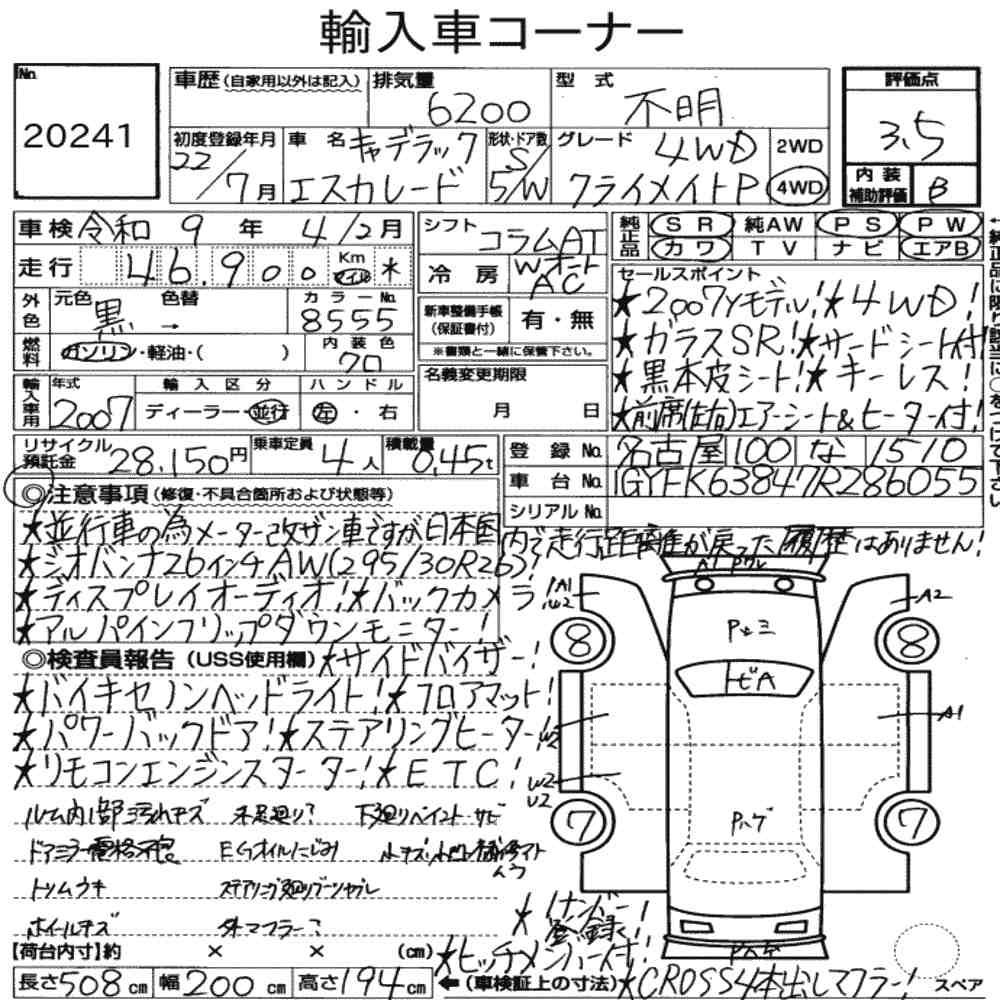 輸入車コーナー
No.
20241
車歴 (自家用以外は記入)
排気量
6200
型式
不明
評価点
3.5
初度登録年月
22/7月
車名
キャデラック
エスカレード
形状・ドア数
S/5/W
グレード
4WD
クライメイトP
2WD
4WD
内装補助評価
B
車検 令和 9 年 4/2月
走行 46,900 Km マイル ※
シフト コラムAT
冷房 Wオート AC
純正品 SR 純AW PS PW
カワ TV ナビ エアB
←純正品に限り該当に○をつけて下さい
外色 元色 黒 → 色替
カラーNo.
8555
燃料 ガソリン・軽油・( )
内装色
クロ
新車整備手帳(保証書付) 有・無
※書類と一緒に保管下さい。
セールスポイント
★2007Yモデル!★4WD!
★ガラスSR!★サードシート付!
★黒本皮シート!★キーレス!
★前席(左右)エアーシート&ヒーター付!
輸入車用 年式 2007
輸入区分
ディーラー・並行
ハンドル
左・右
名義変更期限
月 日
リサイクル預託金 28,150円
乗車定員 4人
積載量 0.45t
登録No. 名古屋 100 な 1510
車台No. 1GYFK63847R286055
シリアルNo.
◎注意事項 (修復・不具合箇所および状態等)
★並行車の為メーター改ザン車ですが日本国内で走行距離が戻った履歴はありません!
★ジオバンナ26インチAW(295/30R26)!
★ディスプレイオーディオ!★バックカメラ
★アルパインフリップダウンモニター!
◎検査員報告 (USS使用欄) ★サイドバイザー!
★バイキセノンヘッドライト!★フロアマット!
★パワーバックドア!★ステアリングヒーター
★リモコンエンジンスターター!★ETC!
ルーム内部汚れキズ 未足廻り? 下廻りペイント サビ
ドアミラー電格不良 EGオイルにじみ
トリムウキ
ホイルキズ 外マフラー?
A1 Pワレ
A1
W2
A2
8
8
Pセミ
トビA
A1
W2
U2
7
7
Pハゲ
Pハゲ
★1ナンバー登録!
★ヒッチメンバー付!
【荷台内寸】約 × × (cm)
長さ508cm 幅200cm 高さ194cm
←(車検証上の寸法) ★CROSS4本出しマフラー!
スペア